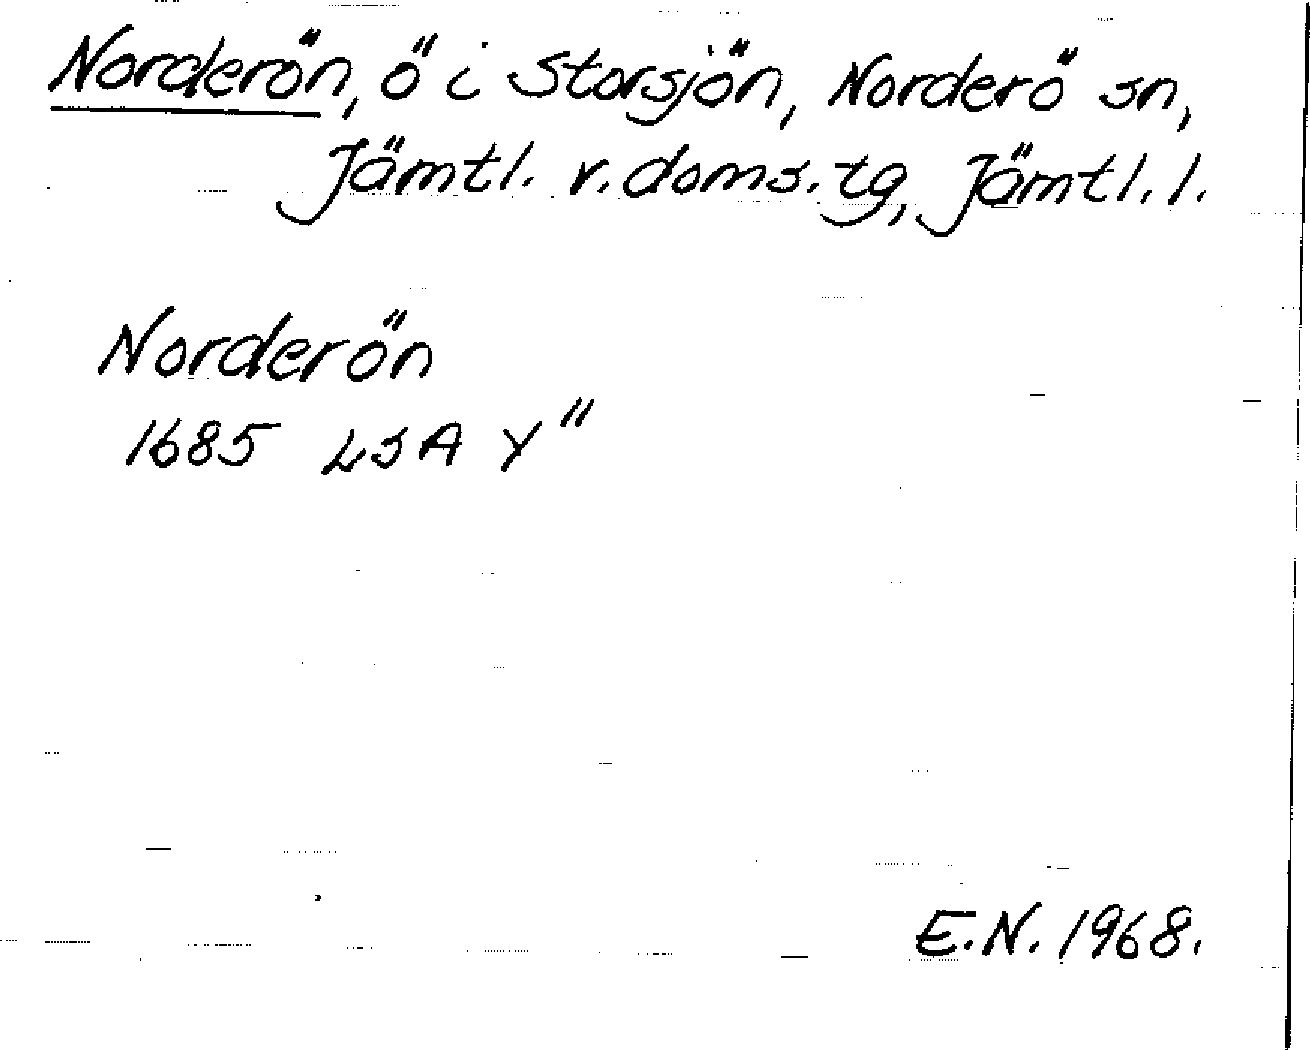 Norderön, ö i Storsjön, Norderö sn,
Jämtl. v. doms. tg, Jämtl. l.
Norderön
1685 LSA Y"
E.N. 1968.